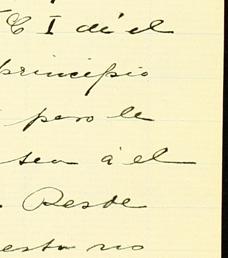 I di el
principio
pero le
sea á el
Desde
esta no